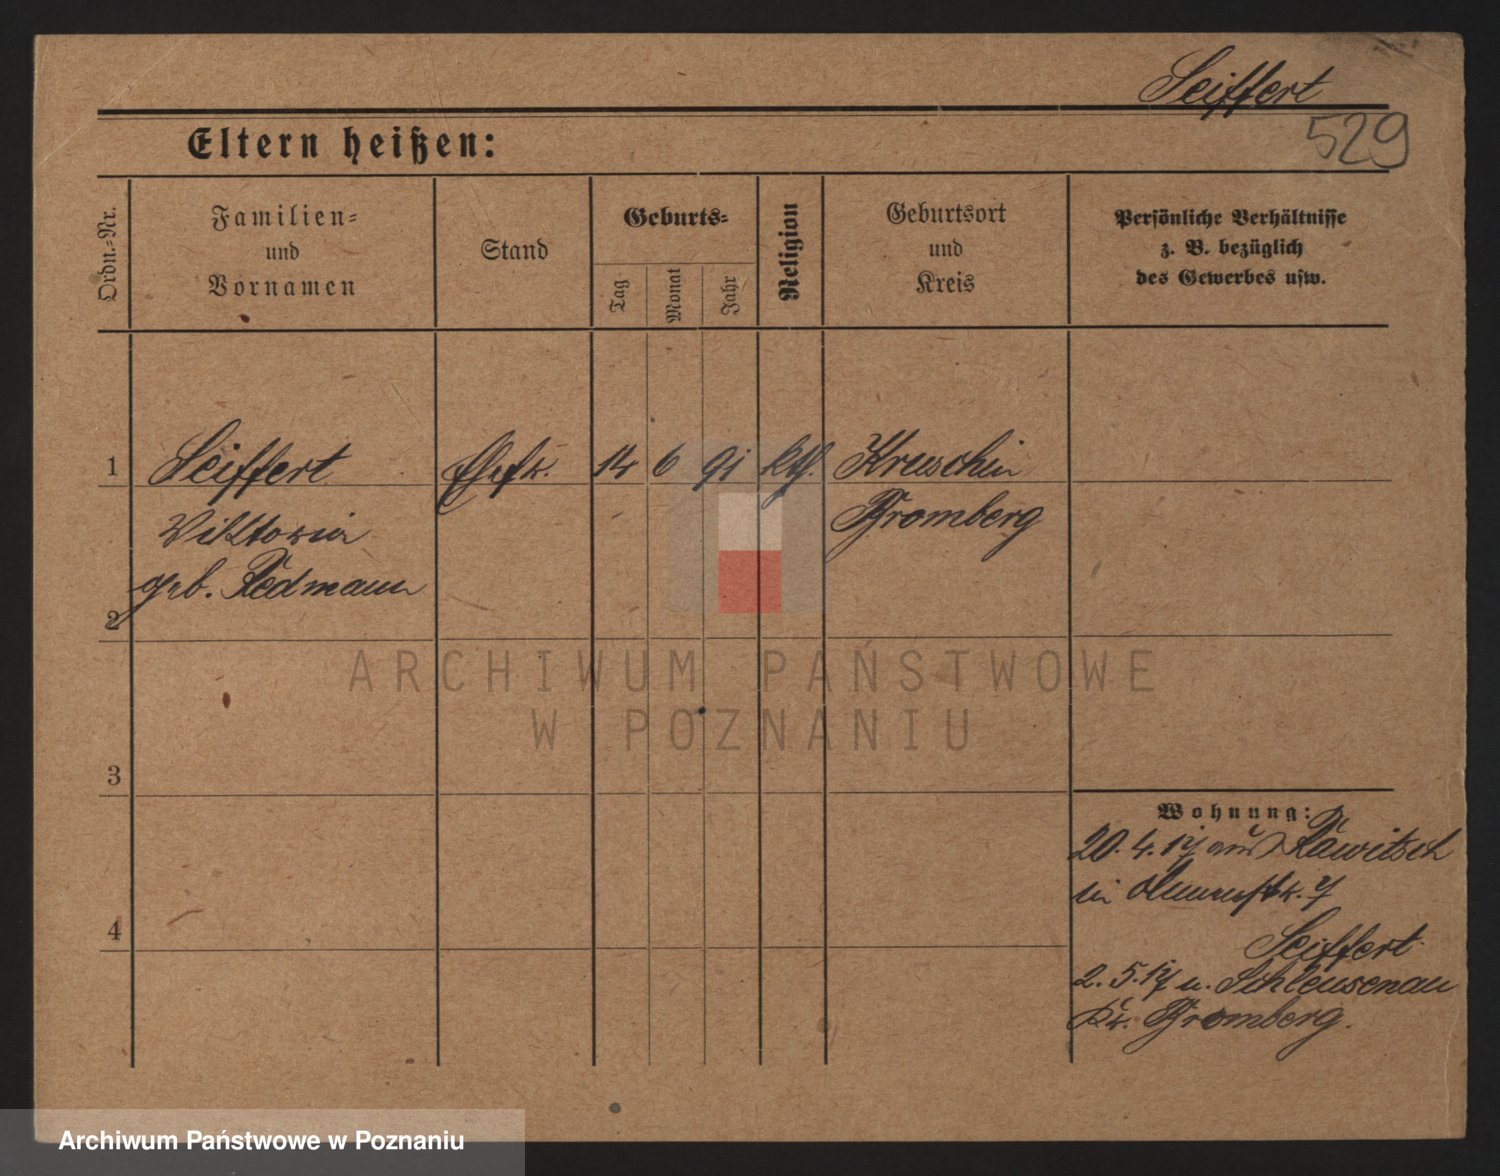 Seiffert
529
Eltern heißen:
Ordn.=Nr.
Familien=
und
Vornamen
Stand
Geburts=
Tag
Monat
Jahr
Religion
Geburtsort
und
Kreis
Persönliche Verhältnisse
z. B. bezüglich
des Gewerbes usw.
1 Seiffert Ehefr. 14 6 91 kth. Kruschin
Viktoria Bromberg
geb. Redmann
2
3
4
Wohnung:
20. 4. 17 aus Rawitsch
in 7
Seiffert
2. 5. 17 n. Schleusenau
Kr. Bromberg.
ARCHIWUM PAŃSTWOWE
W POZNANIU
Archiwum Państwowe w Poznaniu